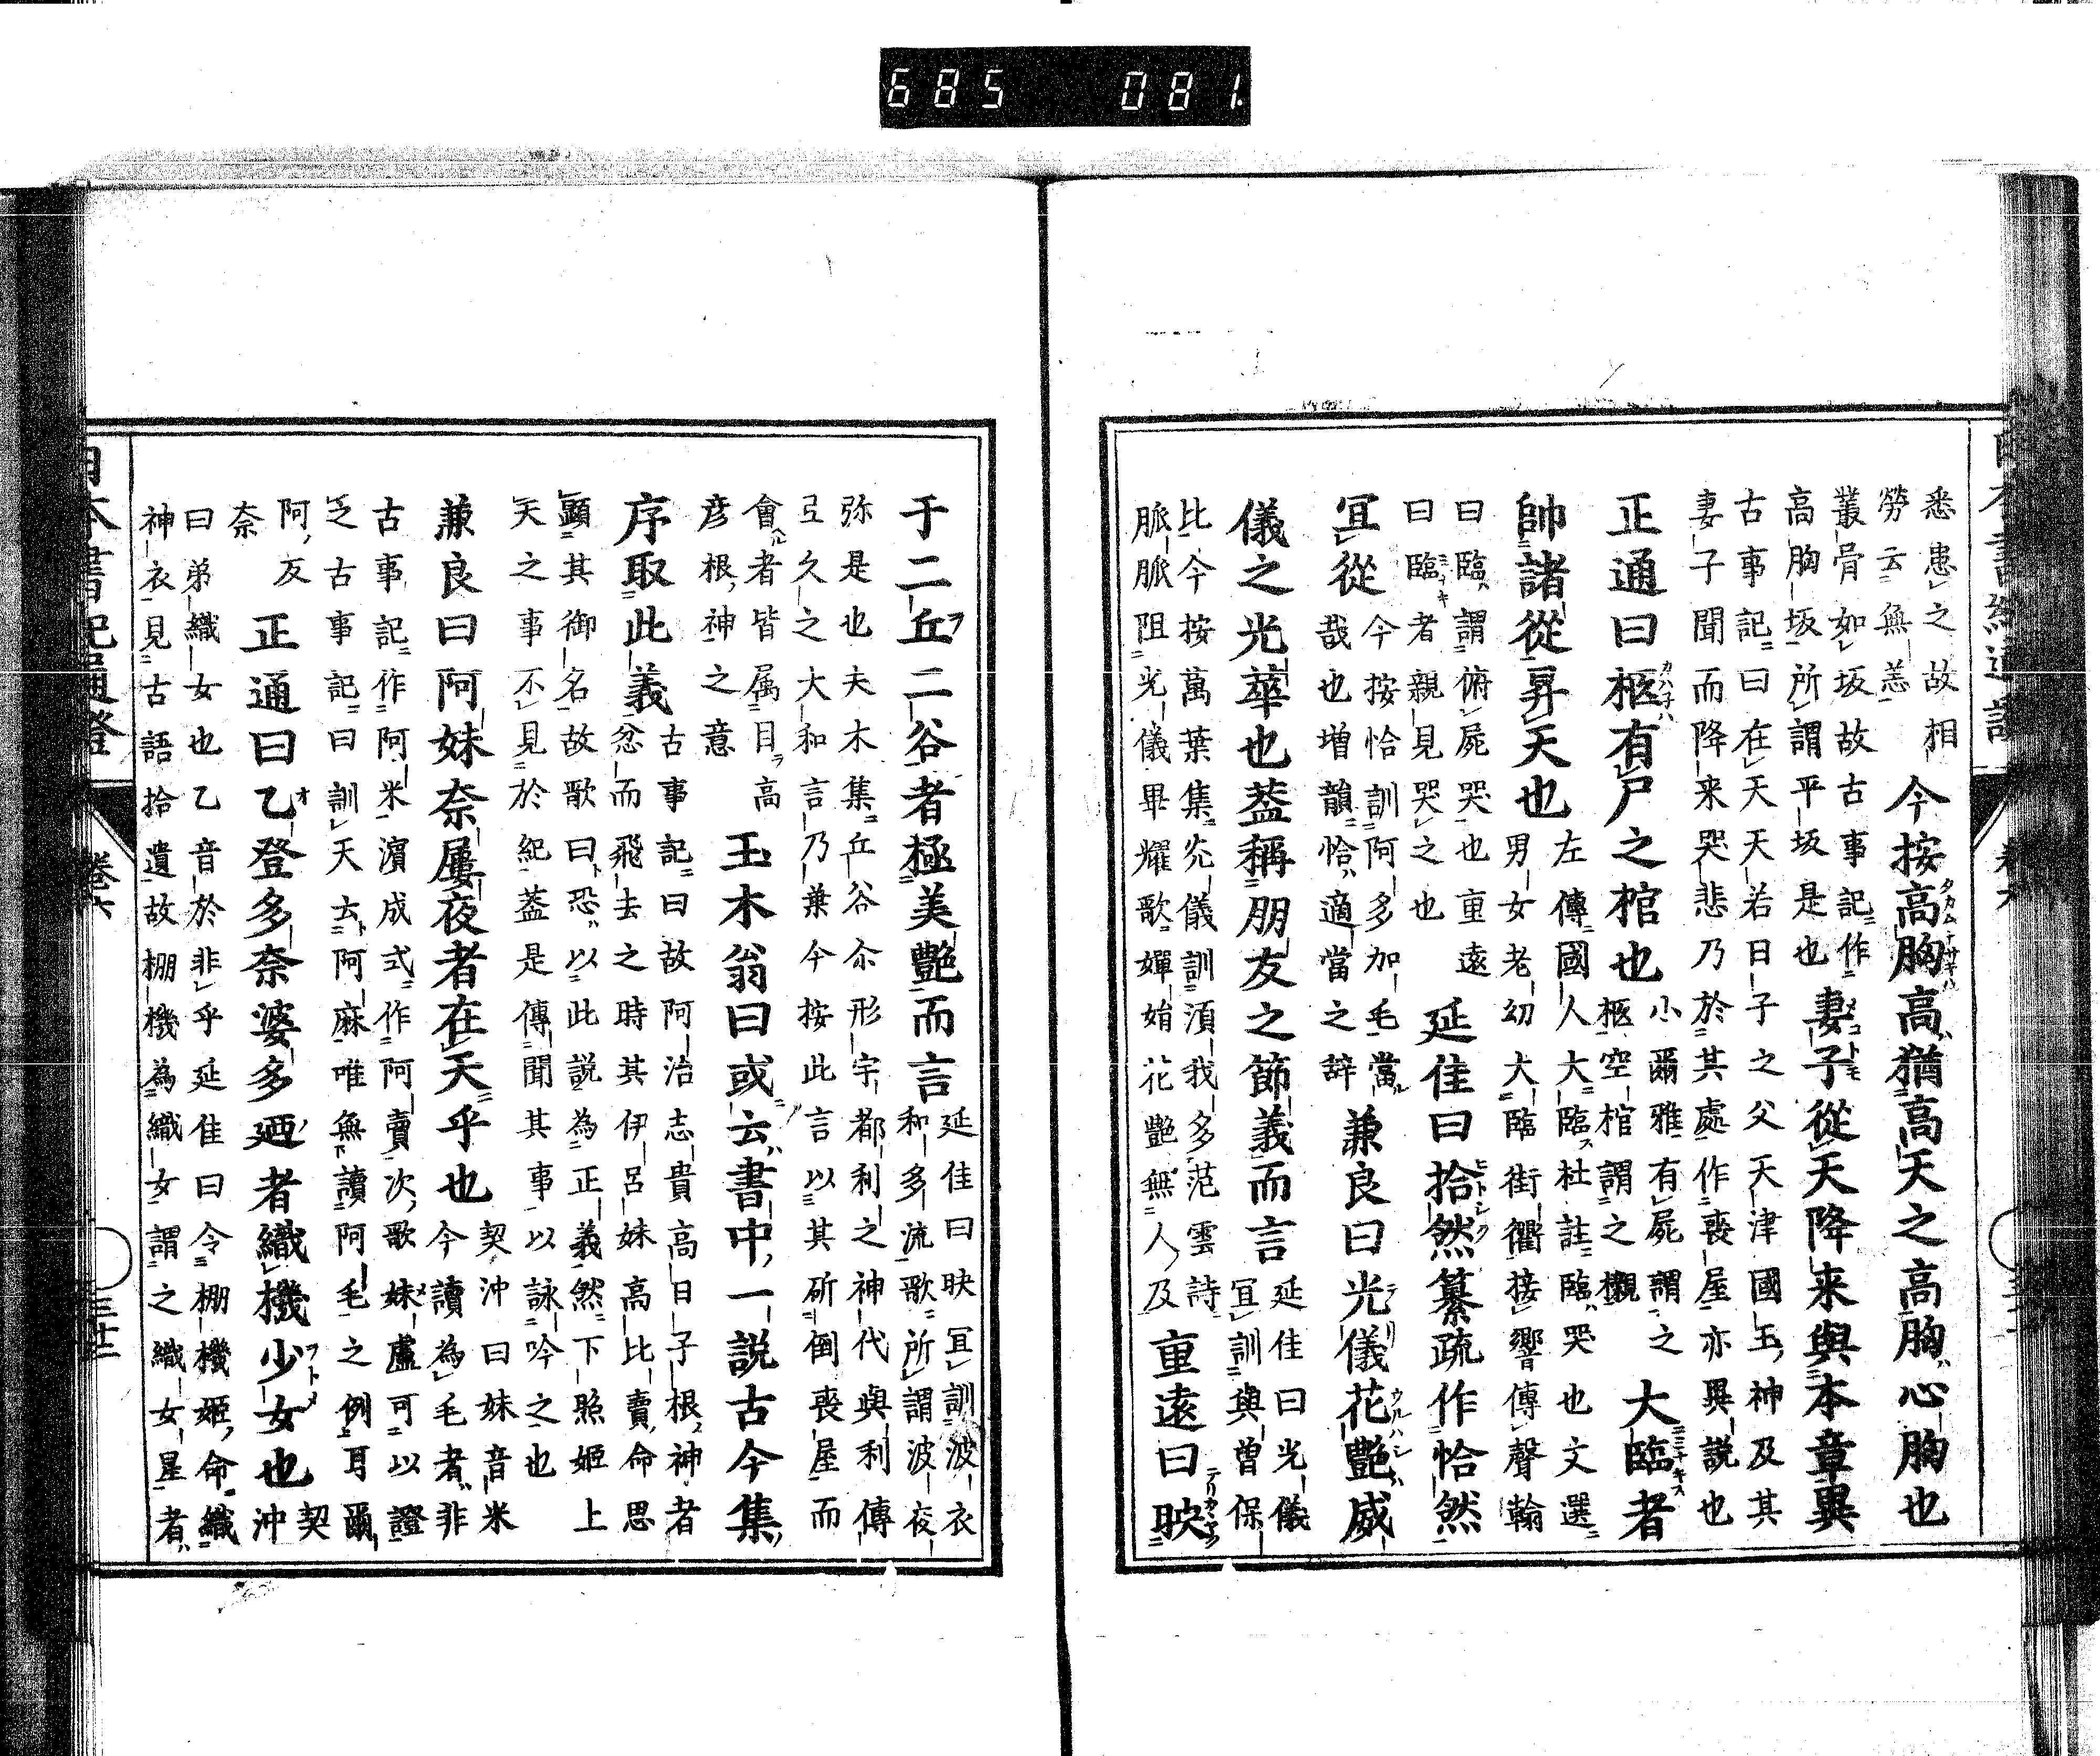 685 081
悉患之故相
勞云無恙
今按高胸高猶高天之高胸心胸也
叢骨如坂故古事記作
高胸坂所謂平坂是也
妻子從天降来與本章異
古事記曰在天天若日子之父天津國玉神及其
妻子聞而降来哭悲乃於其處作喪屋亦異説也
正通曰柩有尸之棺也
小爾雅有屍謂之
柩空棺謂之櫬
大臨者
帥諸從昇天也
左傳國人大臨杜註臨哭也文選
男女老幼大臨街衢接響傳聲翰
曰臨謂俯屍哭也重遠
曰臨者親見哭之也
延佳曰拾然纂疏作恰然
冝從
今按恰訓阿多加毛當
哉也増韻恰適當之辞
兼良曰光儀花艷威
儀之光華也葢稱朋友之節義而言
延佳曰光儀
冝訓與曽保
比今按萬葉集光儀訓湏我多范雲詩
脈脈阻光儀畢耀歌嬋娟花艶無人及
重遠曰映
于二丘二谷者極美艷而言
延佳曰映冝訓波衣
和多流歌所謂波夜
弥是也夫木集丘谷尒形宇都利之神代與利傳
弖久之大和言乃兼今按此言以其斫倒喪屋而
會者皆属目高
彦根神之意
玉木翁曰或云書中一説古今集
序取此義
古事記曰故阿治志貴高日子根神者
忿而飛去之時其伊呂妹高比賣命思
顕其御名故歌曰恐以此説為正義然下照姫上
天之事不見於紀葢是傳聞其事以詠吟之也
兼良曰阿妹奈屢夜者在天乎也
契沖曰妹音米
今讀為毛者非
古事記作阿米濵成式作阿賣次歌妹盧可以證
之古事記曰訓天云阿麻唯無讀阿毛之例耳爾
阿反
奈
正通曰乙登多奈婆多廼者織機少女也
契
沖
曰弟織女也乙音於非乎延佳曰令棚機姫命織
神衣見古語拾遺故棚機為織女謂之織女星者
日本書紀通證
卷六